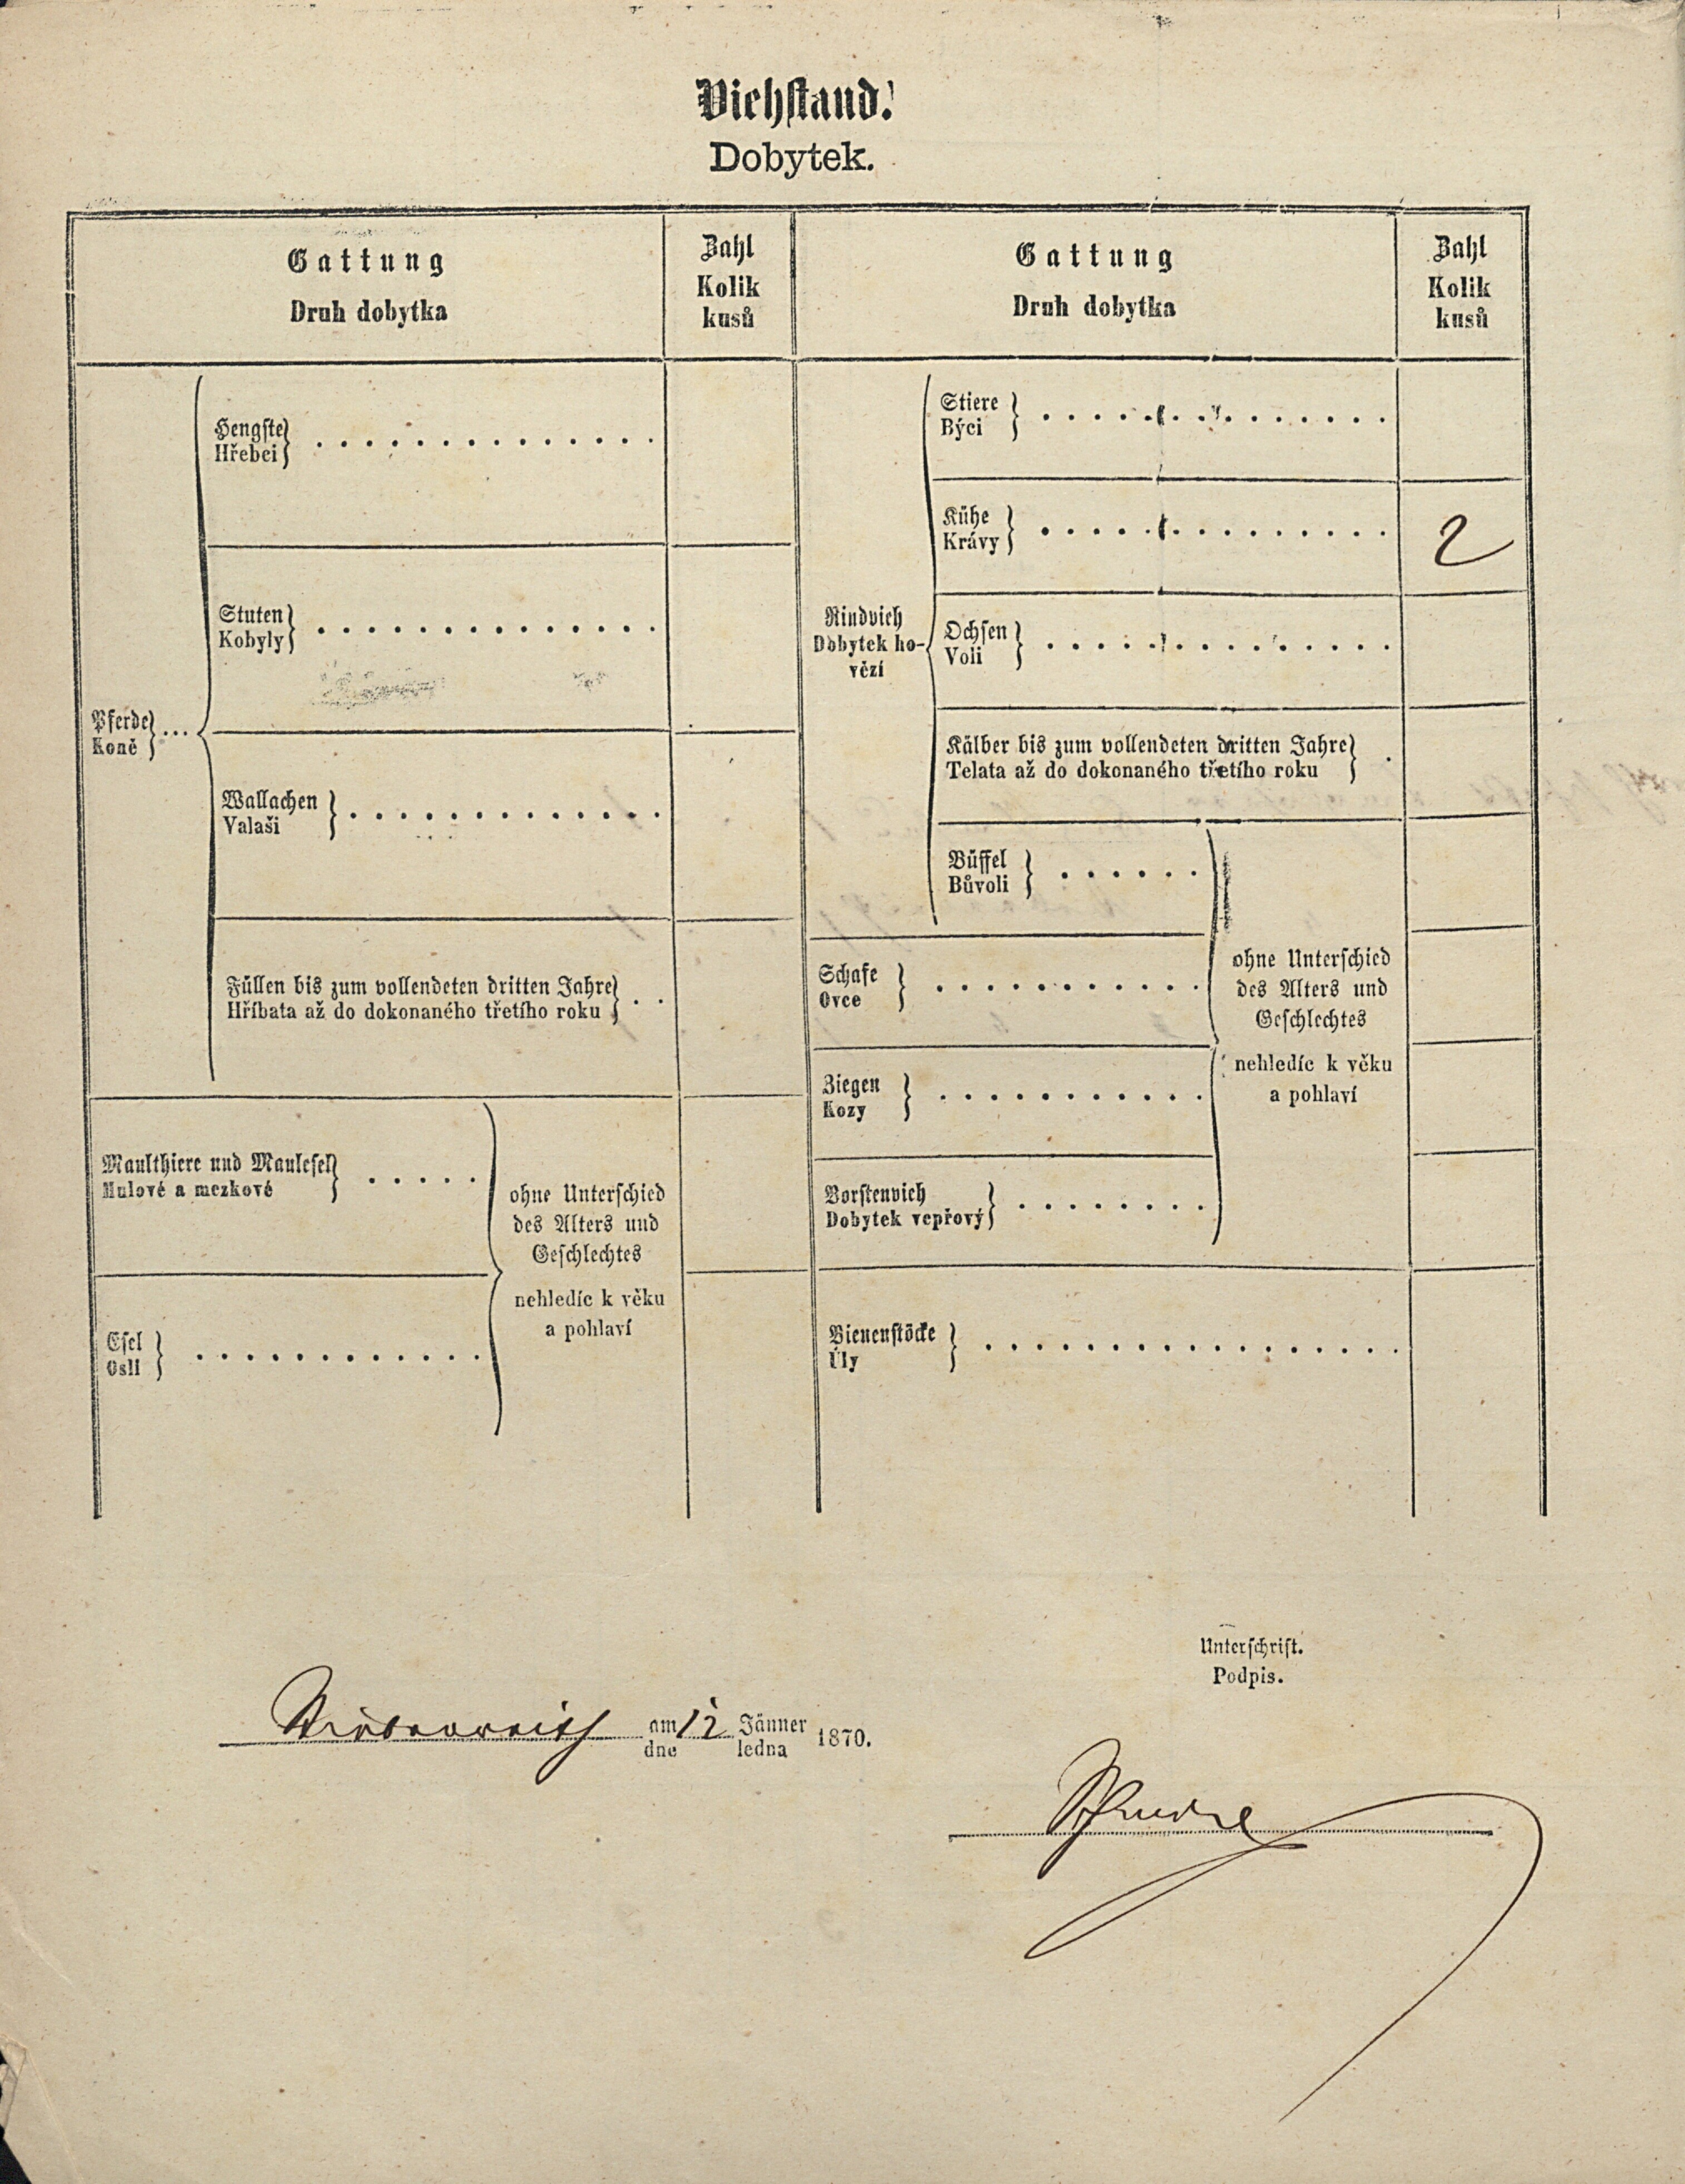 Viehstand.
Dobytek.
Gattung
Druh dobytka
Zahl
Kolik
kusů
Gattung
Druh dobytka
Zahl
Kolik
kusů
Pferde
Koně
Hengste
Hřebci
Stuten
Kobyly
Wallachen
Valaši
Füllen bis zum vollendeten dritten Jahre
Hříbata až do dokonaného třetího roku
Maulthiere und Maulesel
Mulové a mezkové
Esel
Osli
ohne Unterschied
des Alters und
Geschlechtes
nehledíc k věku
a pohlaví
Rindvieh
Dobytek ho-
vězí
Stiere
Býci
Kühe
Krávy
2
Ochsen
Voli
Kälber bis zum vollendeten dritten Jahre
Telata až do dokonaného třetího roku
Büffel
Bůvoli
Schafe
Ovce
Ziegen
Kozy
Borstenvieh
Dobytek vepřový
ohne Unterschied
des Alters und
Geschlechtes
nehledíc k věku
a pohlaví
Bienenstöcke
Úly
Unterschrift.
Podpis.
am 12 Jänner 1870.
dne ledna